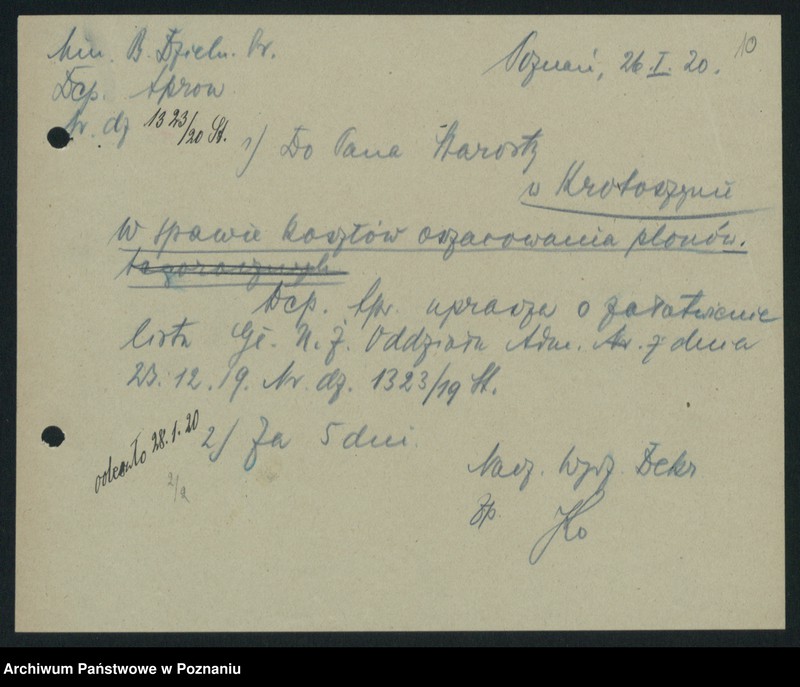 Min. B. Dzieln. Pr.
Dep. Aprow.
Nr. dz 1323/20 St.
Poznań, 26.I.20.
10
1) Do Pana Starosty
w Krotoszynie
W spawie kosztów oszacowania plonów.
tegorocznych
Dep. Apr. uprasza o załatwienie
listu Gł. U. Z. Oddziału Adm. Nr. z dnia
23.12.19. Nr. dz. 1323/19 St.
odesłano 28.1.20
2) Za 5 dni.
2/2
Nacz. Wydz.
zp.
Archiwum Państwowe w Poznaniu